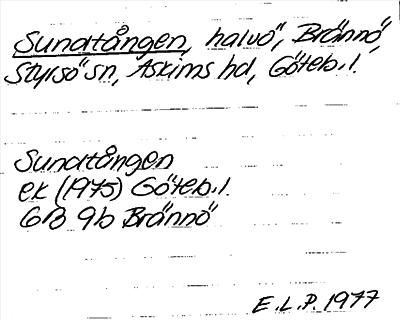 Sundtången, halvö, Brännö,
Styrsö sn, Askims hd, Göteb. l.
Sundtången
ek (1975) Göteb. l.
6B 9b Brännö
E.L.P. 1977